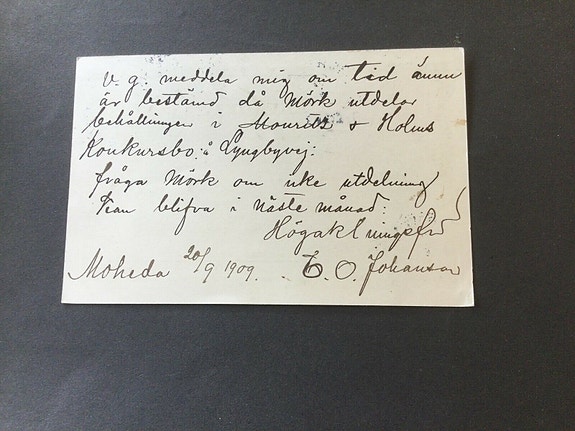 V. g. meddela mig om tid ännu
är bestämd då Mörk utdelar
behållningen i Mouritz & Holms
Konkursbo å Lyngbyvej.
fråga Mörk om icke utdelning
kan blifva i näste månad.
Högaktningsfv
Moheda 20/9 1909. O. Johansson